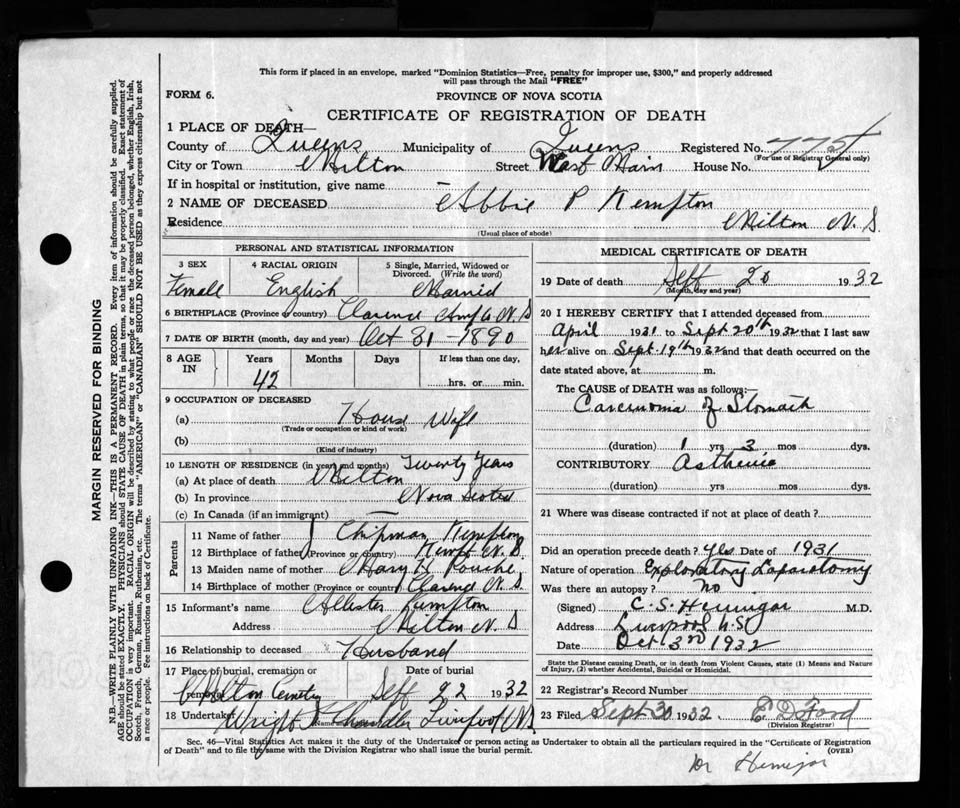 This form if placed in an envelope, marked "Dominion Statistics—Free, penalty for improper use, $300," and properly addressed
will pass through the Mail "FREE"
FORM 6.
PROVINCE OF NOVA SCOTIA
CERTIFICATE OF REGISTRATION OF DEATH
1 PLACE OF DEATH—
County of Queens Municipality of Queens Registered No.
(For use of Registrar General only)
City or Town Milton Street West Main House No.
If in hospital or institution, give name —
2 NAME OF DECEASED Abbie P Kempton
Residence Milton N. S.
(Usual place of abode)
MARGIN RESERVED FOR BINDING
N.B.—WRITE PLAINLY WITH UNFADING INK—THIS IS A PERMANENT RECORD. Every item of information should be carefully supplied.
AGE should be stated EXACTLY. PHYSICIANS should STATE CAUSE OF DEATH in plain terms, so that it may be properly classified. Exact statement of
OCCUPATION is very important. RACIAL ORIGIN will be described by stating to what people or race the deceased person belonged, whether English, Irish,
Scotch, French, German, Russian, Ruthenian, etc. The terms "AMERICAN" or "CANADIAN" SHOULD NOT BE USED as they express citizenship but not
a race or people. See instructions on back of Certificate.
PERSONAL AND STATISTICAL INFORMATION
3 SEX
Female
4 RACIAL ORIGIN
English
5 Single, Married, Widowed or
Divorced. (Write the word)
Married
6 BIRTHPLACE (Province or country) Clarence N S
7 DATE OF BIRTH (month, day and year) Oct 31 1890
8 AGE IN
Years Months Days If less than one day,
42
hrs. or min.
9 OCCUPATION OF DECEASED
(a) House Wife
(Trade or occupation or kind of work)
(b)
(Kind of industry)
10 LENGTH OF RESIDENCE (in years and months) Twenty Years
(a) At place of death Milton
(b) In province Nova Scotia
(c) In Canada (if an immigrant)
Parents
11 Name of father J Chipman Kempton
12 Birthplace of father (Province or country) Kempt N. S.
13 Maiden name of mother Mary
14 Birthplace of mother (Province or country) Clarence N. S
15 Informant's name Kempton
Address Milton N. S
16 Relationship to deceased Husband
17 Place of burial, cremation or
removal Milton Cemetery
Date of burial
Sept 22 1932
18 Undertaker Wright Chandler Liverpool N S
MEDICAL CERTIFICATE OF DEATH
19 Date of death Sept 20 1932
(Month, day and year)
20 I HEREBY CERTIFY that I attended deceased from
April 1931 to Sept 20th 1932 that I last saw
her alive on Sept. 19th 1932 and that death occurred on the
date stated above, at m.
The CAUSE OF DEATH was as follows:—
Carcinoma of Stomach
(duration) 1 yrs 3 mos dys.
CONTRIBUTORY Asthenia
(duration) yrs mos dys.
21 Where was disease contracted if not at place of death?
Did an operation precede death? Yes Date of 1931
Nature of operation Exploratory Laparotomy
Was there an autopsy? no
(Signed) C. S. Hennigar M.D.
Address Liverpool N.S.
Date Oct 3rd 1932
State the Disease causing Death, or in death from Violent Causes, state (1) Means and Nature
of Injury, (2) whether Accidental, Suicidal or Homicidal.
22 Registrar's Record Number
23 Filed Sept 30 1932. E D Ford
(Division Registrar)
Sec. 46—Vital Statistics Act makes it the duty of the Undertaker or person acting as Undertaker to obtain all the particulars required in the "Certificate of Registration
of Death" and to file they same with the Division Registrar who shall issue the burial permit.
(OVER)
Dr Hennigar